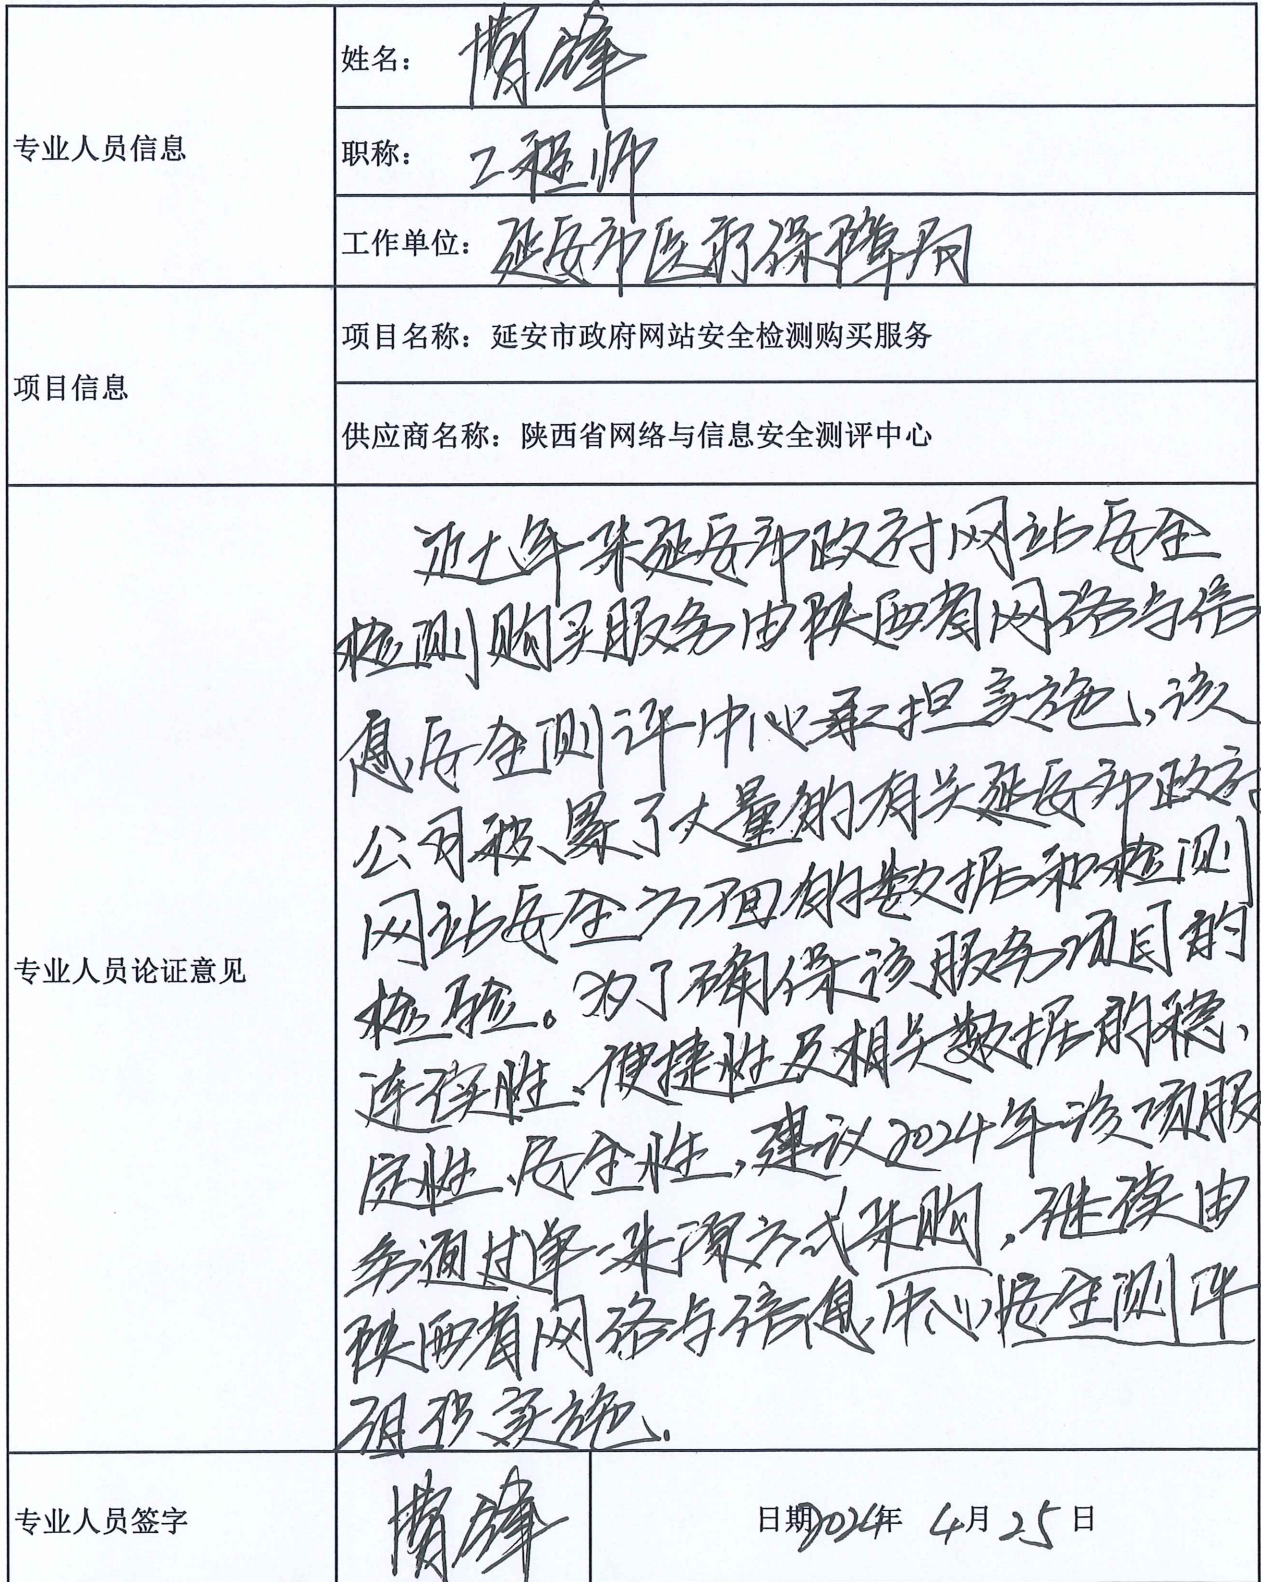 专业人员信息
姓名：
职称：工程师
工作单位：延安市医疗保障局
项目信息
项目名称：延安市政府网站安全检测购买服务
供应商名称：陕西省网络与信息安全测评中心
专业人员论证意见
近七年来延安市政府网站安全
检测购买服务由陕西省网络与信
息安全测评中心承担实施，该
公司积累了大量的有关延安市政府
网站安全方面的数据和检测
检验。为了确保该服务项目的
连续性、便捷性及相关数据的稳
定性、安全性，建议2024年该项服
务通过单一来源方式采购，继续由
陕西省网络与信息中心安全测评
组织实施。
专业人员签字
日期2024年 4月25日